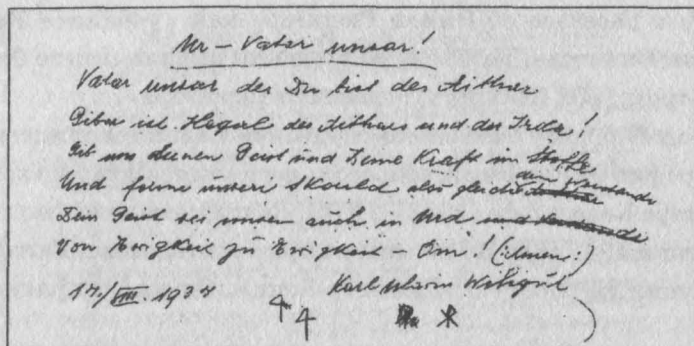 Ur - Vater unsar!
Vater unsar der Du bist der Aithar
Gibor ist Hagal des Aithars und der Irda!
Gib uns Deinen Geist und Deine Kraft im Stoffe
Und forme unsere Skould also gleich der Werdandi
Dein Geist sei unser auch in Urd und
Von Ewigkeit zu Ewigkeit Om! (:Amen:)
17./VIII. 1934 Karl Maria